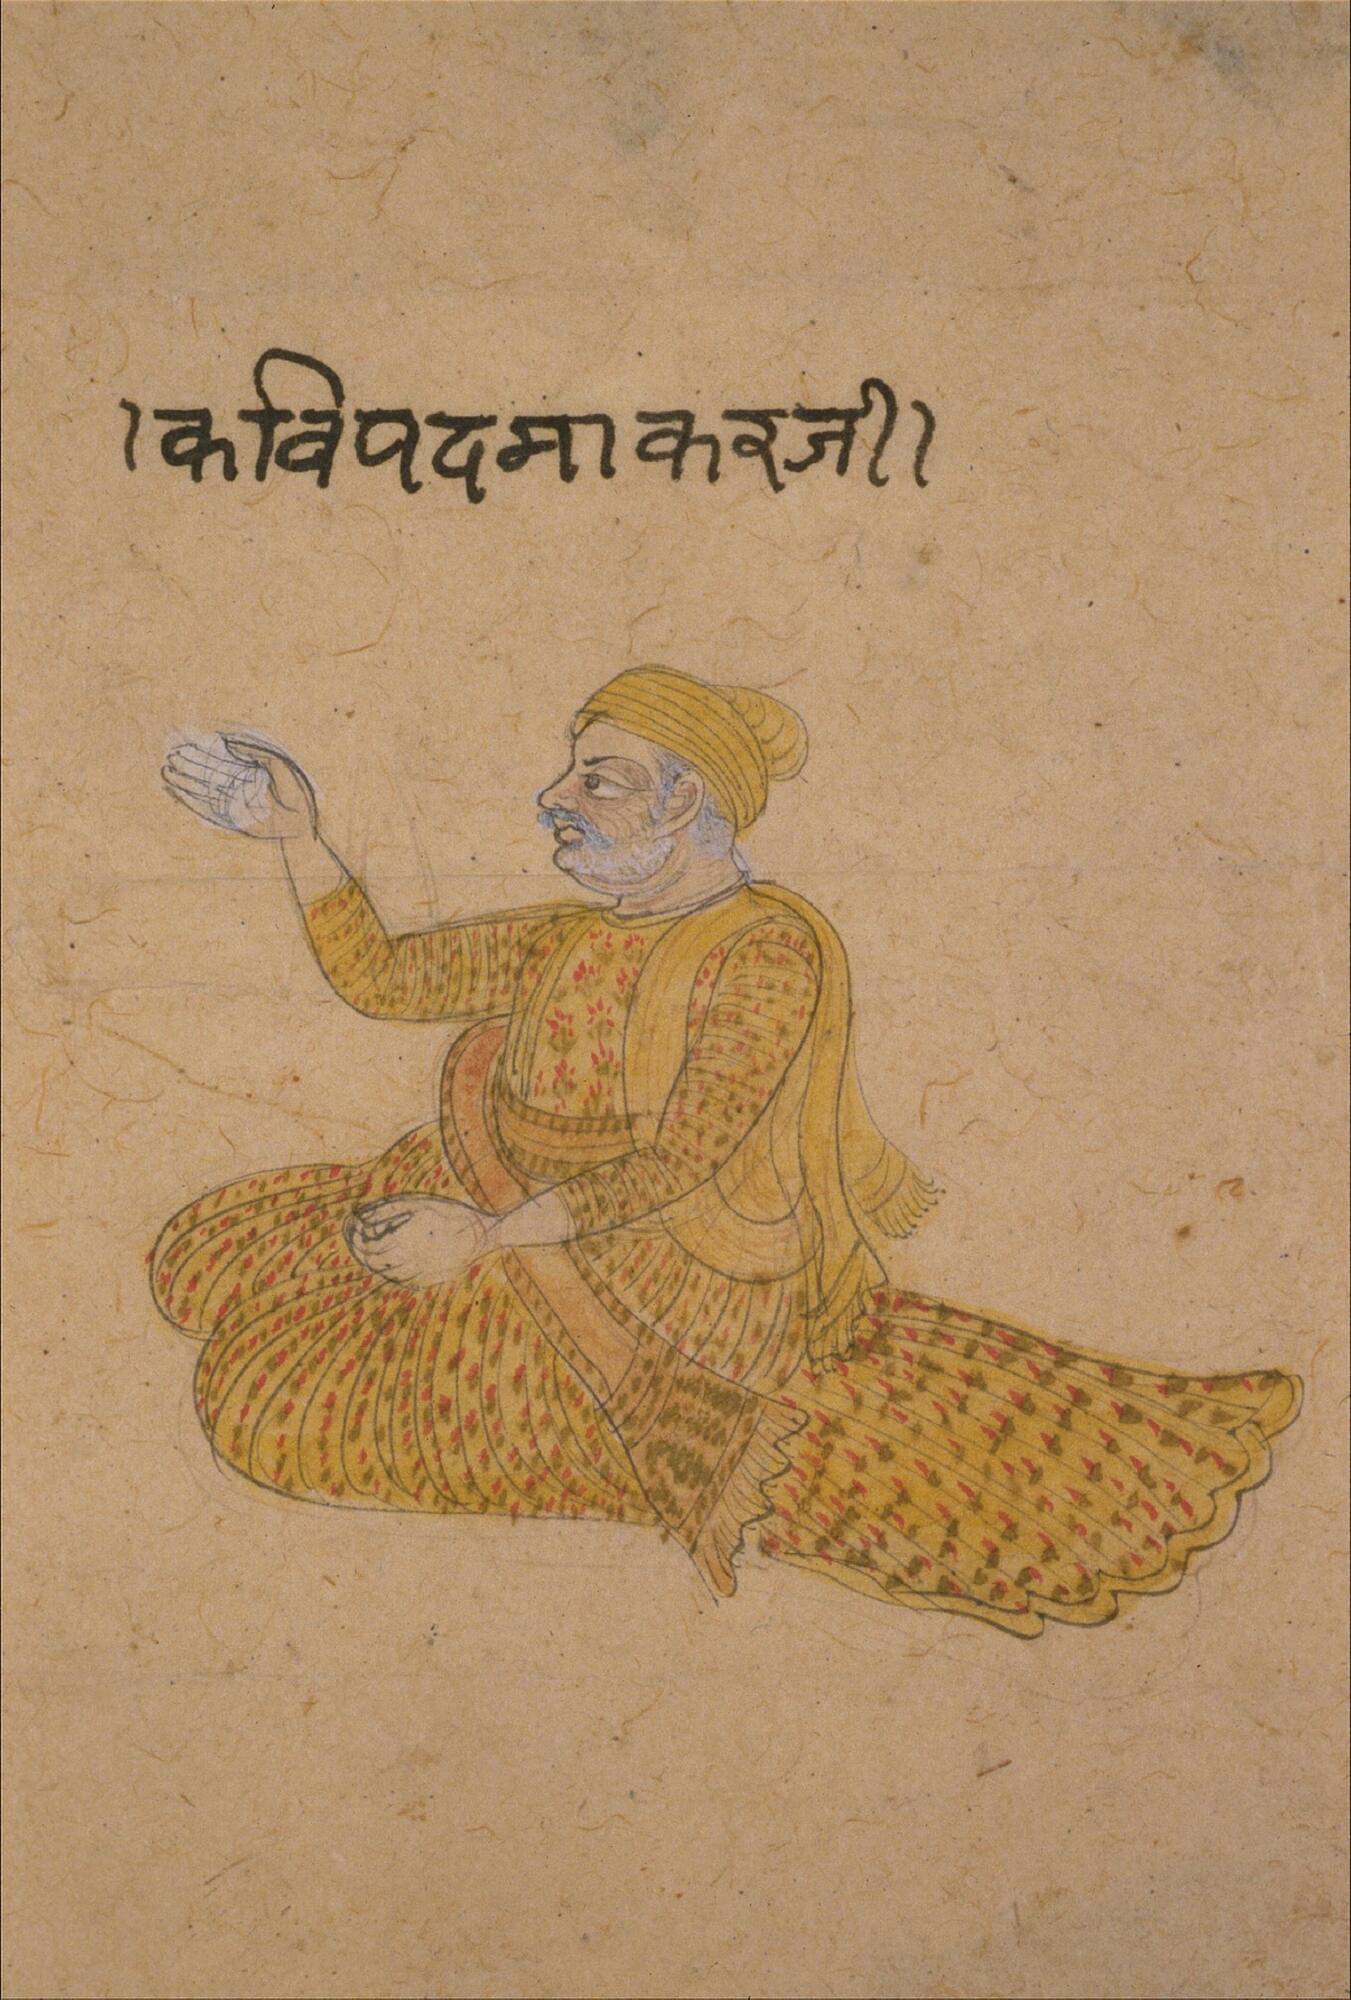 ।कविपदमाकरजी।